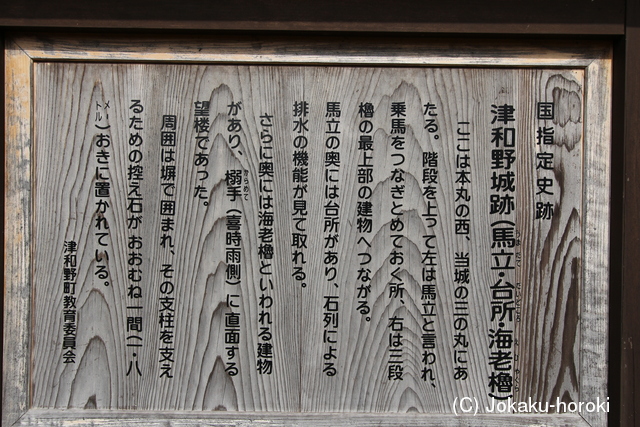 国指定史跡
津和野城跡(馬立・台所・海老櫓)
ここは本丸の西、当城の三の丸にあ
たる。階段を上って左は馬立と言われ、
乗馬をつなぎとめておく所、右は三段
櫓の最上部の建物へつながる。
馬立の奥には台所があり、石列による
排水の機能が見て取れる。
さらに奥には海老櫓といわれる建物
があり、搦手(喜時雨側)に直面する
望楼であった。
周囲は塀で囲まれ、その支柱を支え
るための控え石がおおむね一間(一・八
メートル)おきに置かれている。
津和野町教育委員会
(C) Jokaku-horoki